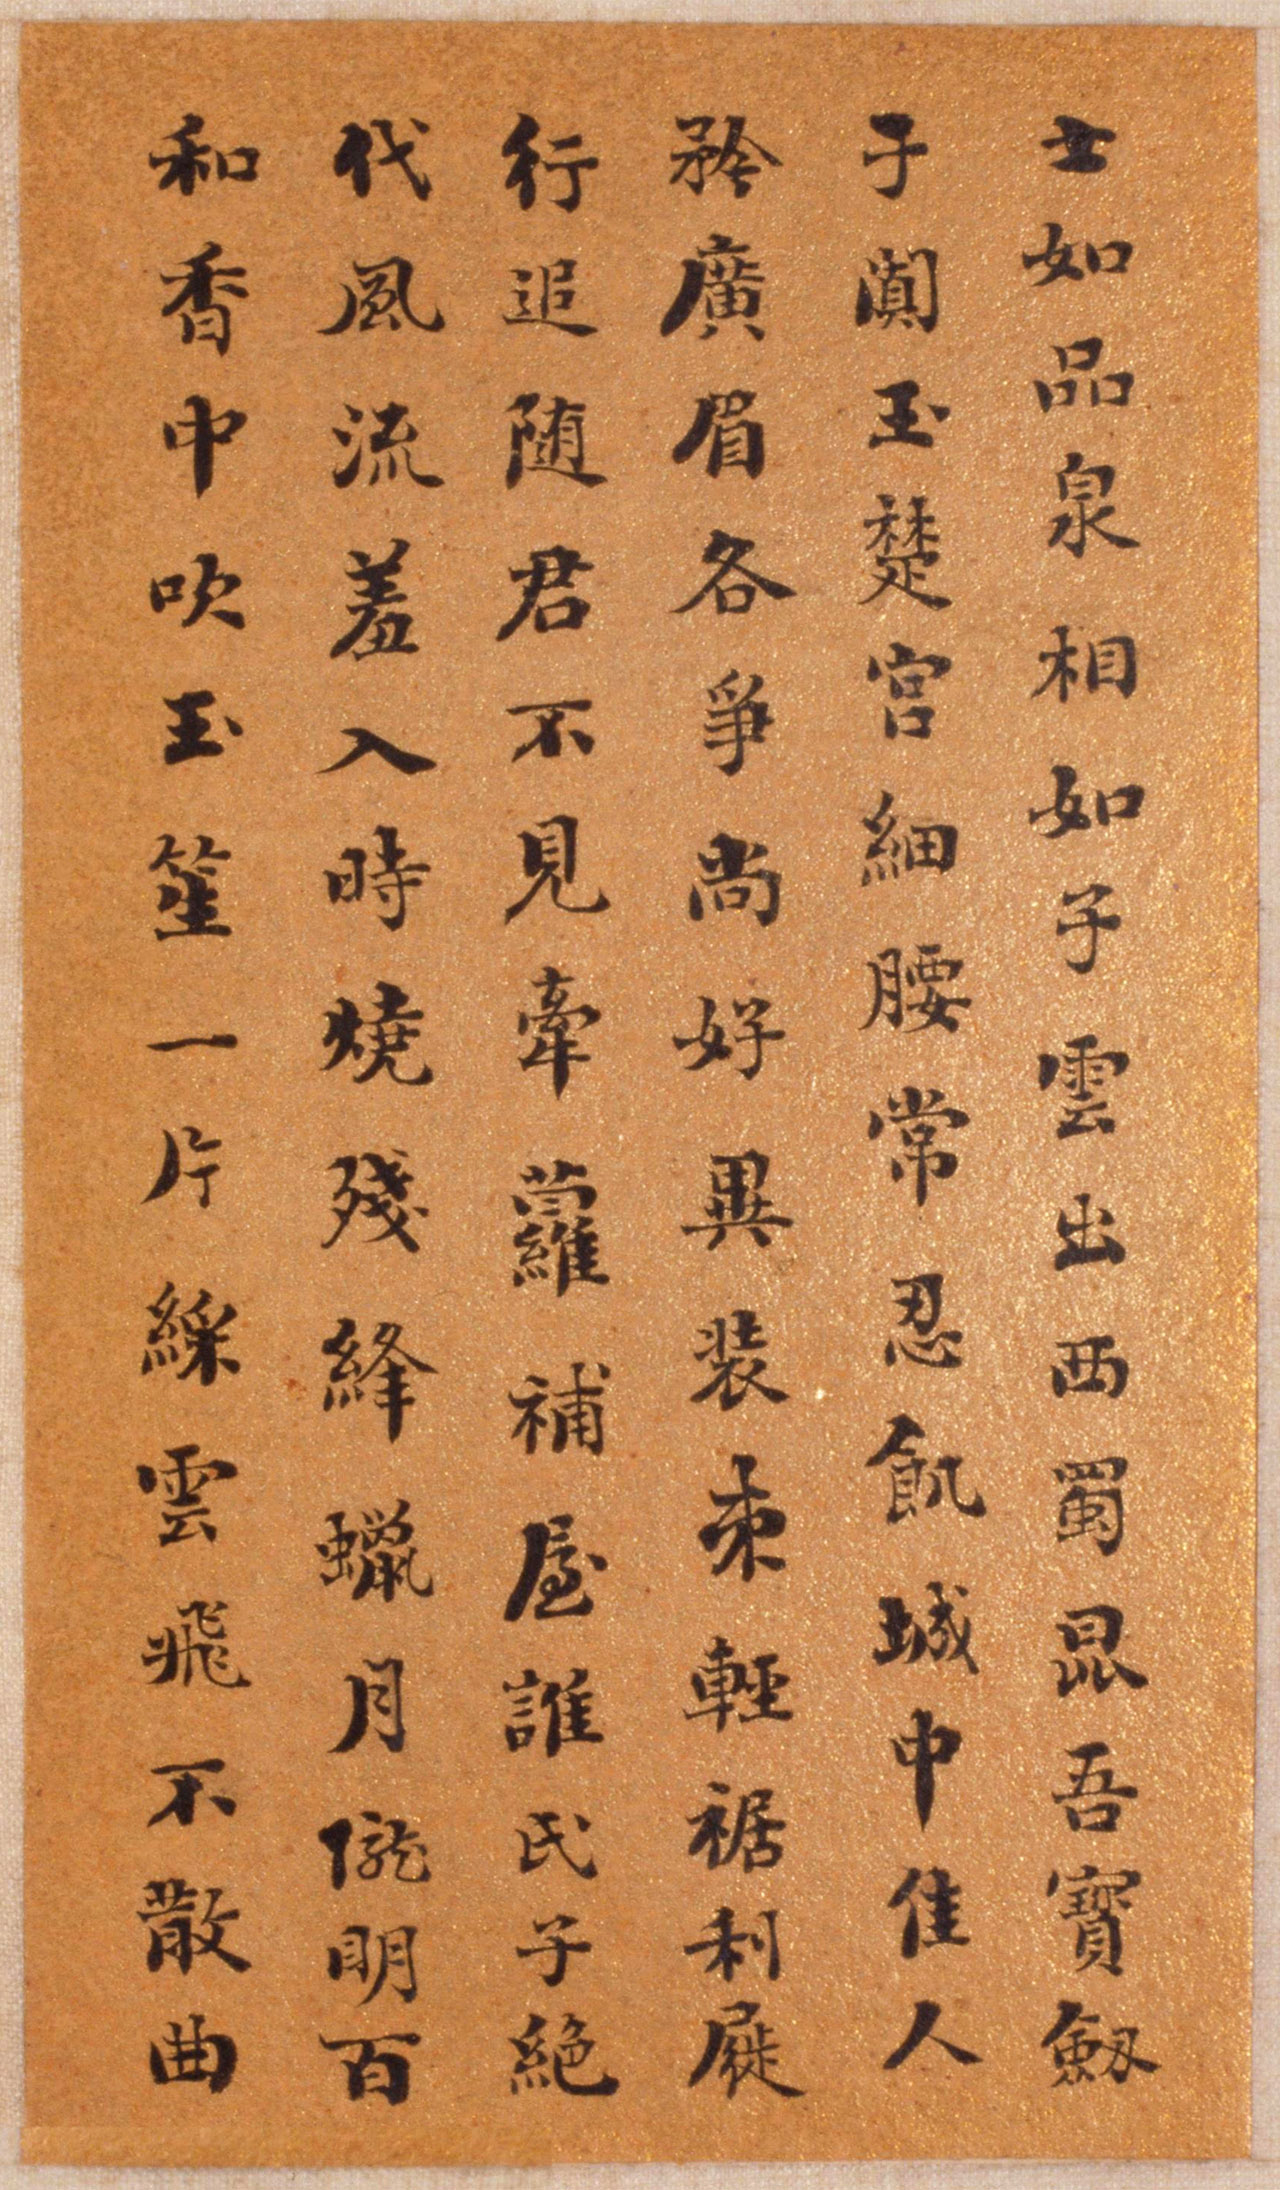 士如品泉相如子雲出西蜀昆吾寶劔
于闐玉楚宮細腰常忍飢城中佳人
矜廣眉各爭尚好異装束輕裾利屣
行追随君不見牽蘿補屋誰氏子絶
代風流羞入時燒殘絳蠟月隴明百
和香中吹玉笙一片綵雲飛不散曲